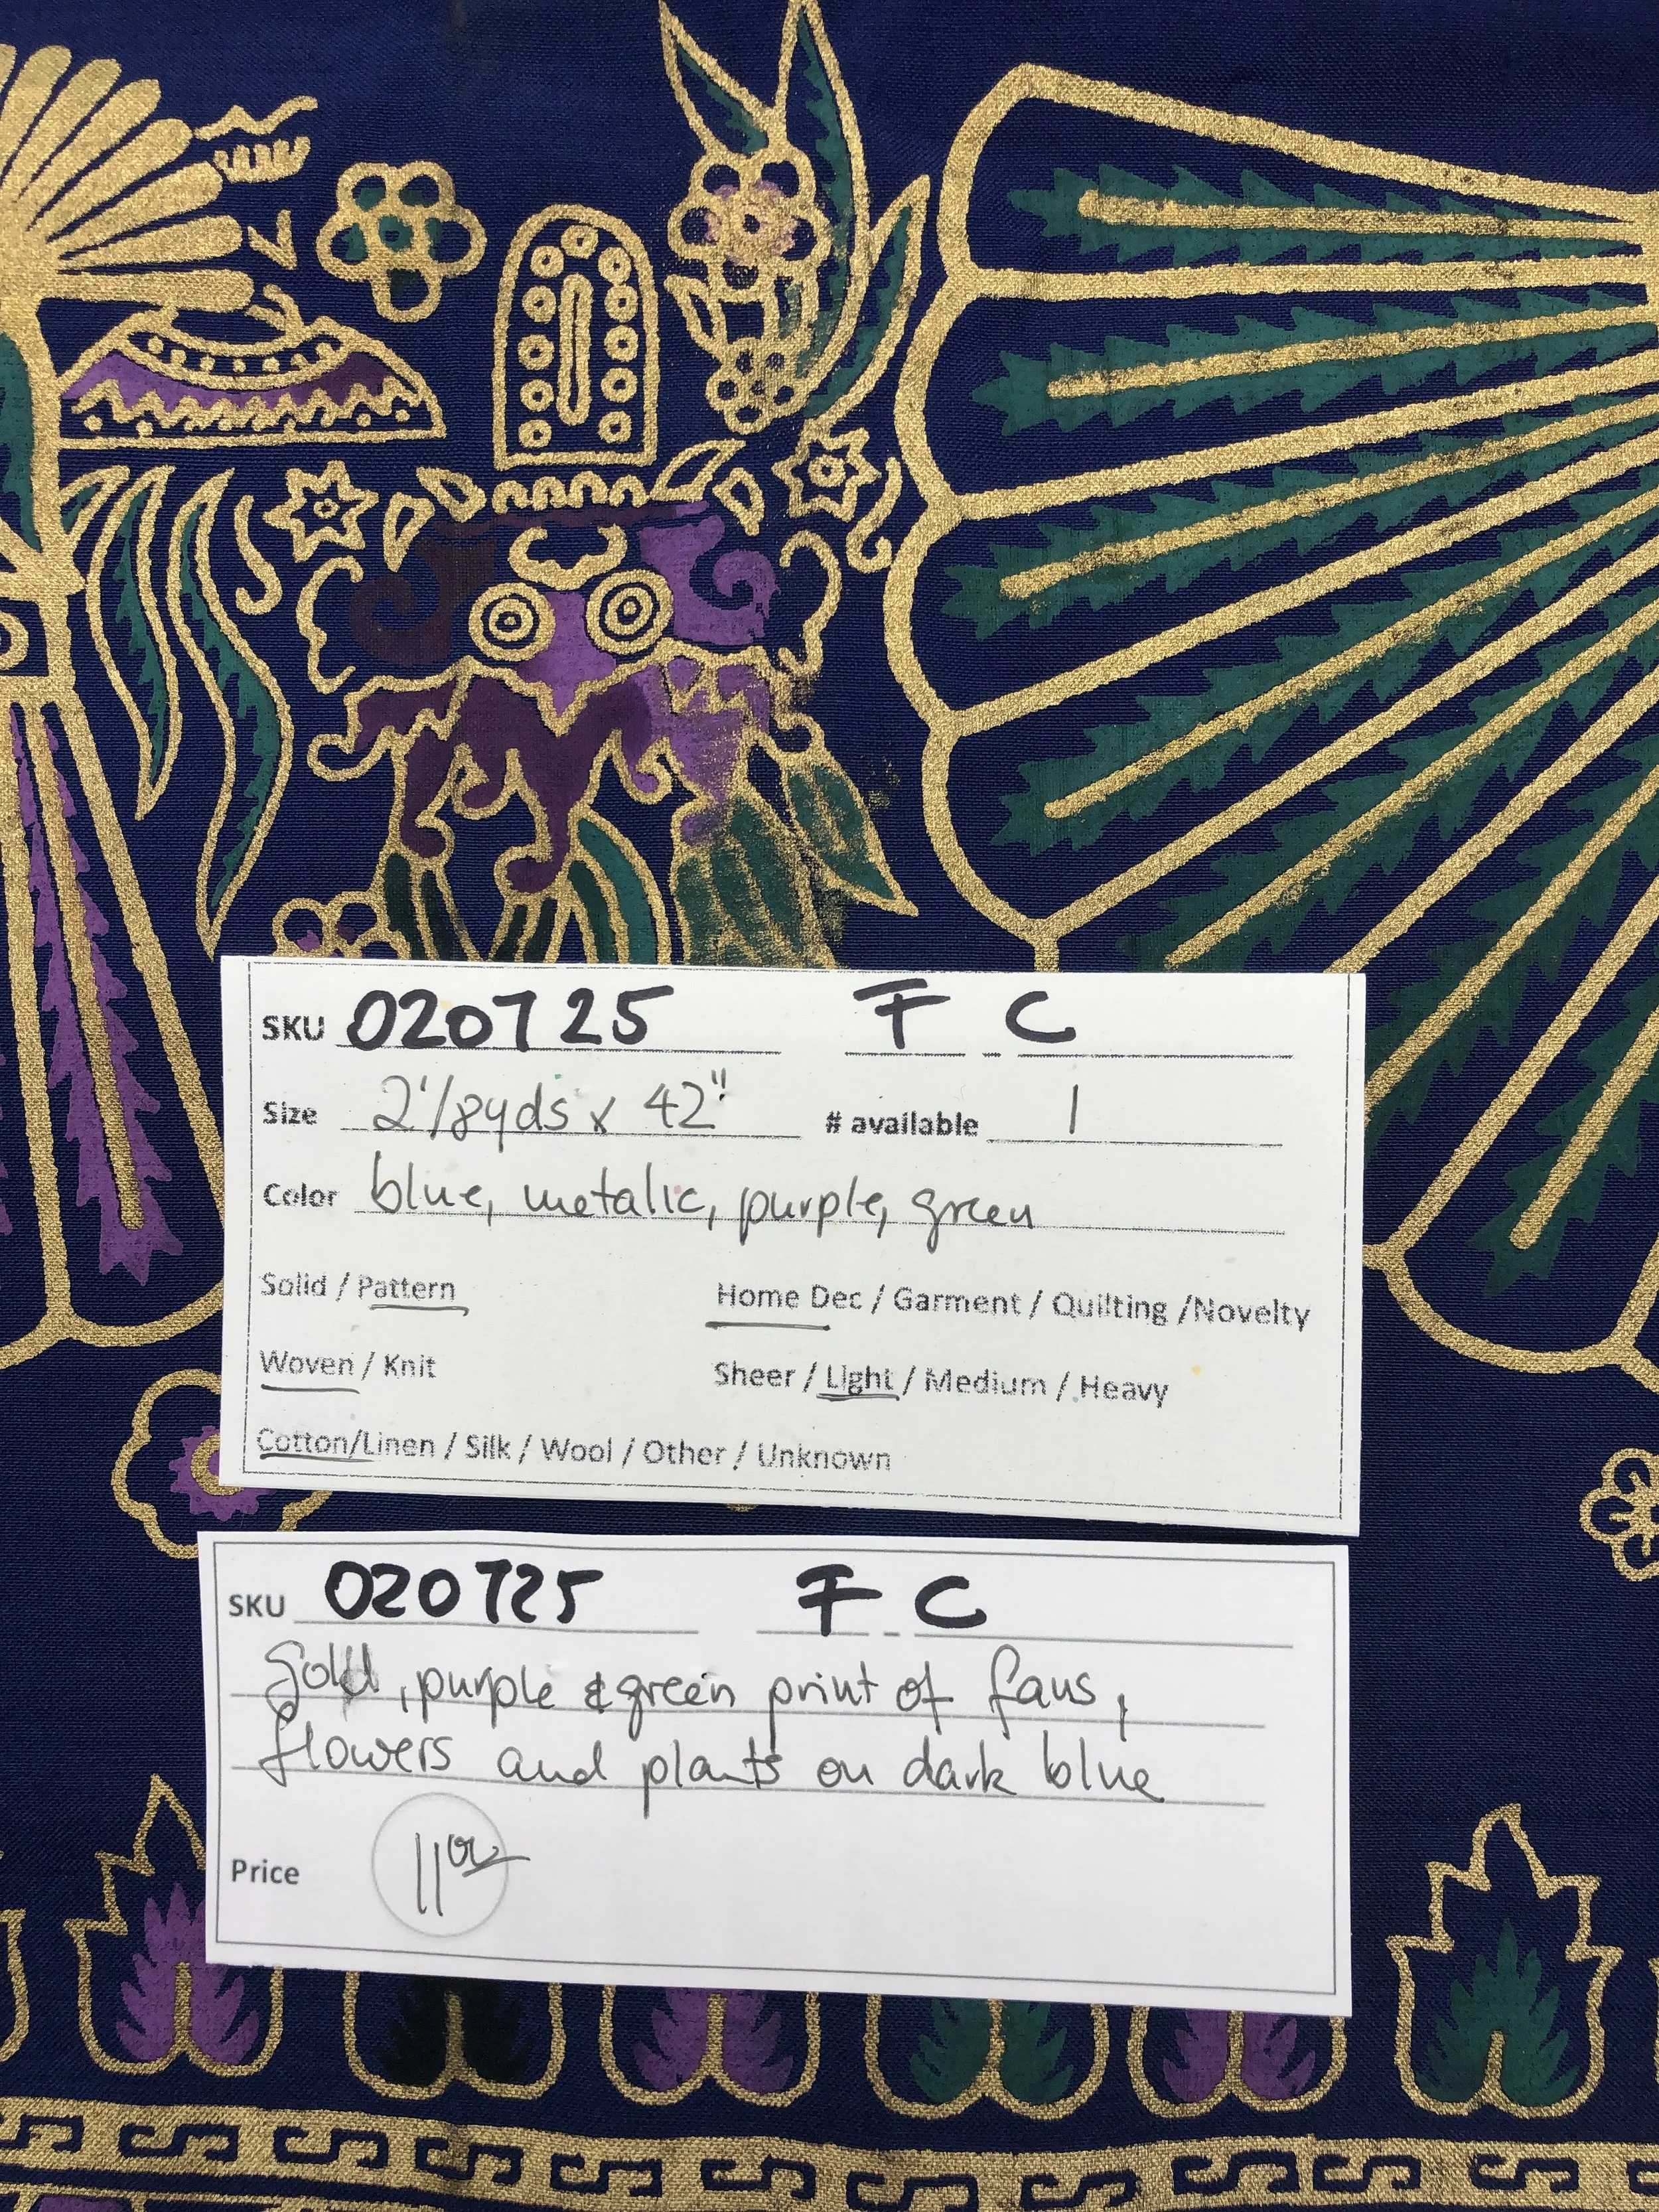 SKU 020725 F - C
Size 2 1/8yds x 42" # available 1
Color blue, metalic, purple, green
Solid / Pattern Home Dec / Garment / Quilting /Novelty
Woven / Knit Sheer / Light / Medium / Heavy
Cotton/Linen / Silk / Wool / Other / Unknown
SKU 020725 F - C
Gold, purple & green print of fans,
flowers and plants on dark blue
Price 11 00